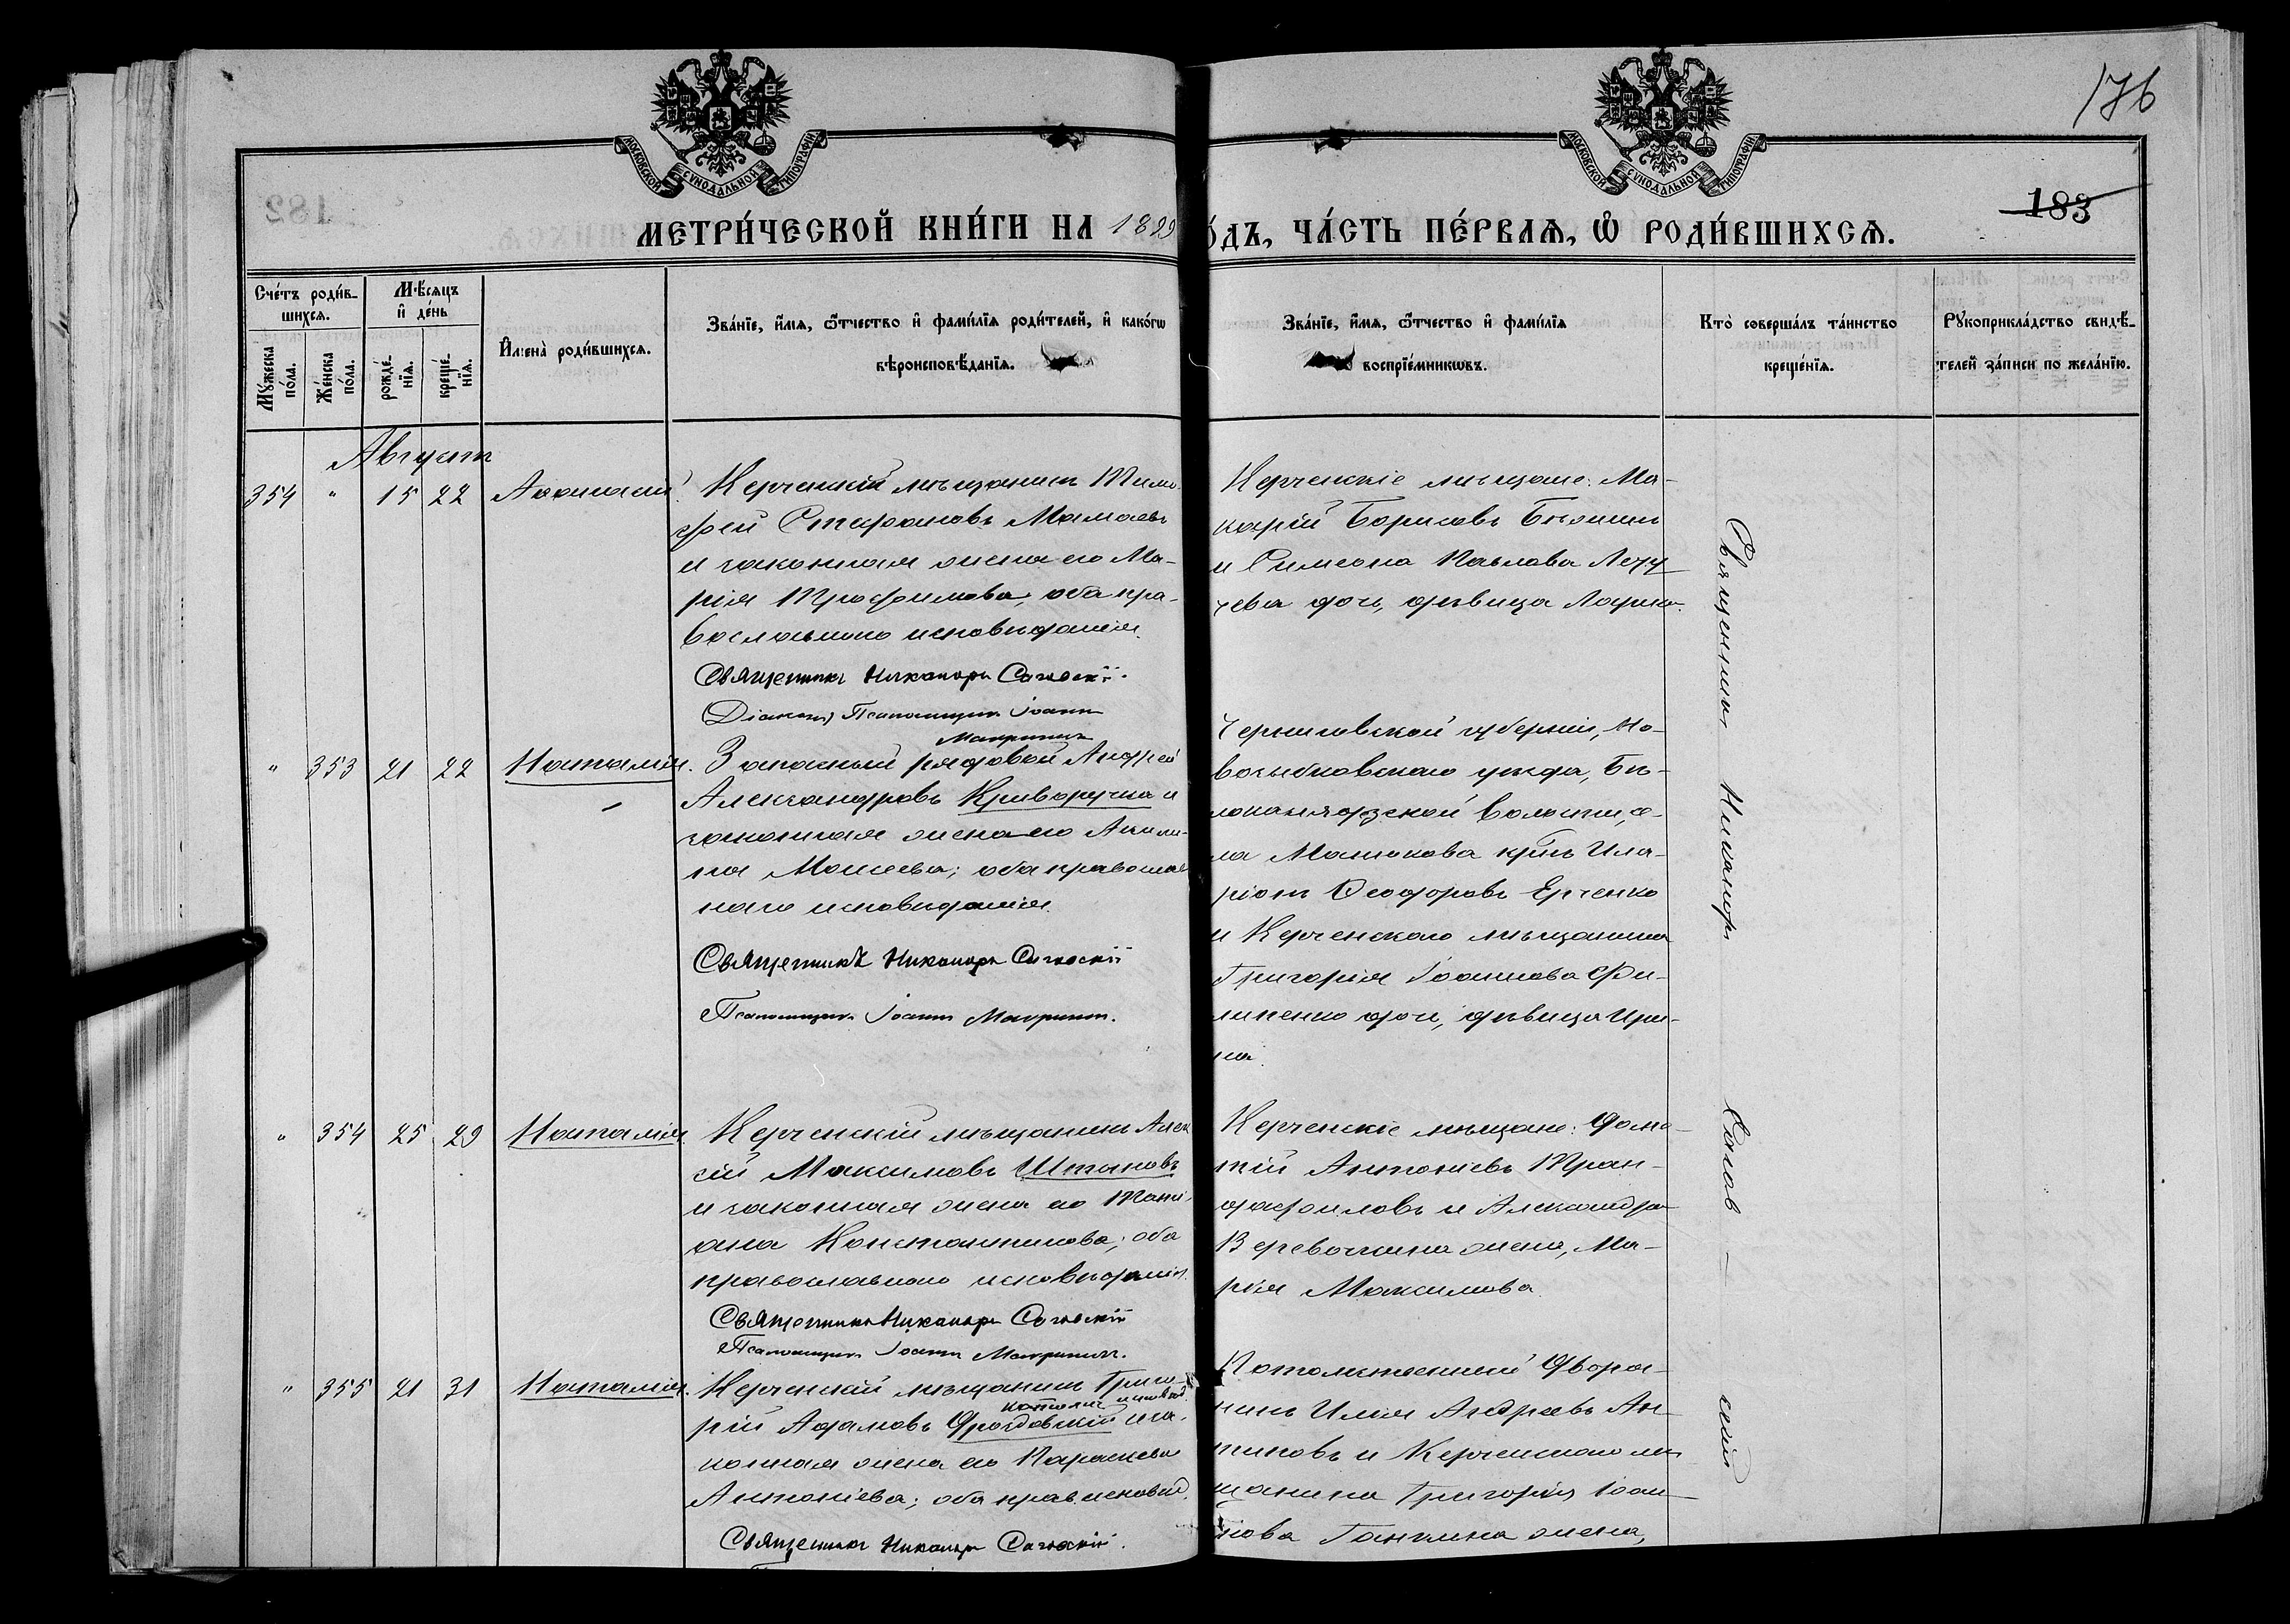 176
МОСКОВСКОЙ СѴНОДАЛЬНОЙ ТИПОГРАФІИ
МОСКОВСКОЙ СѴНОДАЛЬНОЙ ТИПОГРАФІИ
183
МЕТРИ́ЧЕСКОЙ КНИ́ГИ НА 1899
О́ДЪ, ЧА́СТЬ ПЕ́РВАѦ, Ѡ҆ РОДИ́ВШИХСѦ.
Сче́тъ роди́в-
шихсѧ.
Мꙋ́жеска по́ла.
Же́нска по́ла.
Мѣ́сѧцъ
и҆ де́нь
рожде́-
нїѧ.
креще́-
нїѧ.
И҆мена̀ роди́вшихсѧ.
Зва́нїе, и҆́мѧ, ѻ҆́тчество и҆ фами́лїѧ роди́телей, и҆ како́гѡ
вѣроисповѣ́данїѧ.
Зва́нїе, и҆́мѧ, ѻ҆́тчество и҆ фами́лїѧ
воспрїе́мникѡвъ.
Кто̀ соверша́лъ та́инство
креще́нїѧ.
Рꙋкоприкла́дство свидѣ́-
телей за́писи по жела́нїю.
Августъ
354 " 15 22 Аѳанасій.
Керченскій мѣщанинъ Тимо-
фей Стефановъ Мамаевъ
и законная жена его Ма-
рія Трофимова; оба пра-
вославнаго исповѣданія.
Священникъ Никаноръ Саговскій.
Діаконъ, Псаломщикъ Іоаннъ
Керченскіе мѣщане: Ма-
карій Борисовъ
и Симеона Павлова
чева дочь, дѣвица
" 353 21 22 Наталія.
Запасный рядовой Андрей
Александровъ Криворучка и
законная жена его Акили-
на Моисеева; оба православ
наго исповѣданія.
Священникъ Никаноръ Саговскій
Псаломщикъ Іоаннъ
Черниговской губерніи, Но-
возыбковскаго уѣзда, Бѣ-
локолодезской волости, се-
ла Манюкова крест. Ила-
ріонъ Ѳеодоровъ Ерченко
и Керченскаго мѣщанина
Григорія Іоаннова Фи-
липенко дочь, дѣвица Ири-
на.
" 354 25 29 Наталія
Керченскій мѣщанинъ Алек
сій Максимовъ Штановъ
и законная жена его Тати-
ана Константинова; оба
православнаго исповѣданія.
Священникъ Никаноръ Саговскій
Псаломщикъ Іоаннъ
Керченскіе мѣщане:
тій Антоніевъ Тран-
дафиловъ и Александра
Веревочкина жена, Ма-
рія Максимова
" 355 21 31 Наталія.
Керченскій мѣщанинъ Григо-
рій Адамовъ и за-
конная жена его Параскева
Антоніева; оба прав. исповѣд.
Священникъ Никаноръ Саговскій.
Потомственный Дворя-
нинъ Илія Андреевъ Ан-
типовъ и Керченскаго мѣ
щанина Григорія Іоан-
нова жена,
Священникъ Никаноръ Сагов — скій